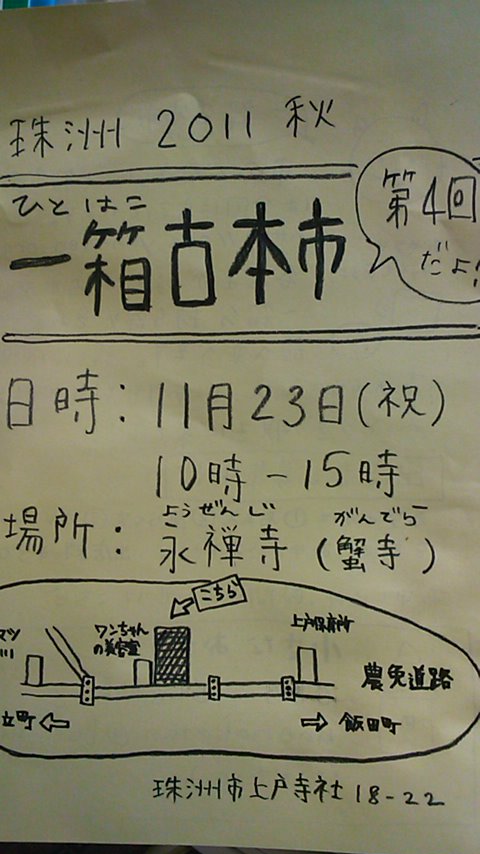 珠洲 2011 秋
ひとはこ
一箱古本市
第4回
だよ!
日時:11月23日(祝)
10時-15時
ようぜんじ がんでら
場所:永禅寺(蟹寺)
こちら
ワンちゃん
の美容室
上戸保育所
農免道路
立町
飯田町
珠洲市上戸寺社18-22